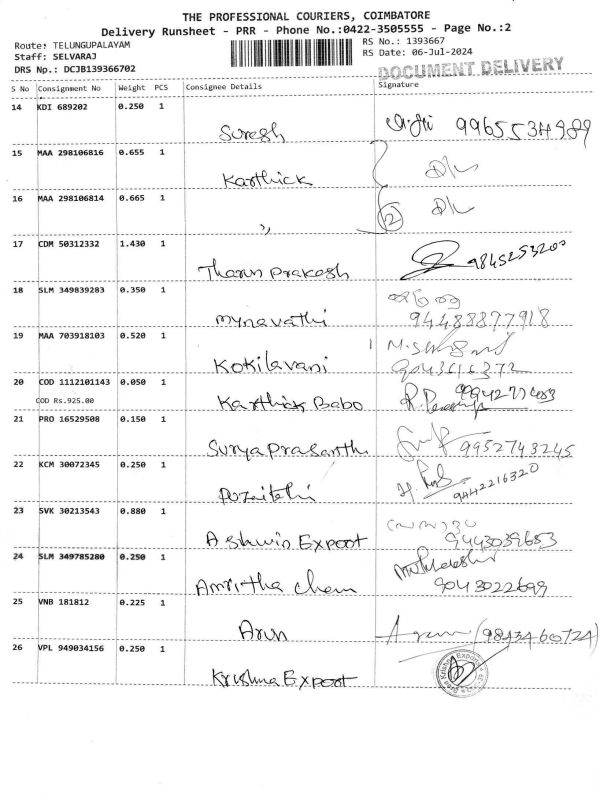 THE PROFESSIONAL COURIERS, COIMBATORE
Delivery Runsheet - PRR - Phone No.:0422-3505555 - Page No.:2
Route: TELUNGUPALAYAM
Staff: SELVARAJ
DRS No.: DCJB139366702
RS No.: 1393667
RS Date: 06-Jul-2024
DOCUMENT DELIVERY
S No Consignment No Weight PCS Consignee Details Signature
14 KDI 689202 0.250 1
Suresh 9965534989
15 MAA 298106816 0.655 1
Karthick
16 MAA 298106814 0.665 1
,, 2
17 CDM 50312332 1.430 1
Tharun Prakash 9845253200
18 SLM 349839283 0.350 1
Mynavathi 94488877918
19 MAA 703918103 0.520 1
Kokilavani 9043616372
20 COD 1112101143 0.050 1
COD Rs.925.00
Karthick Babo
21 PRO 16529508 0.150 1
Surya Prasanth 9952743245
22 KCM 30072345 0.250 1
9442216320
23 SVK 30213543 0.880 1
Ashwin Expoot 9443039653
24 SLM 349785280 0.250 1
Amritha Chem 9043022699
25 VNB 181812 0.225 1
Arun Arun (9843460724)
26 VPL 949034156 0.250 1
Krishna Expoot